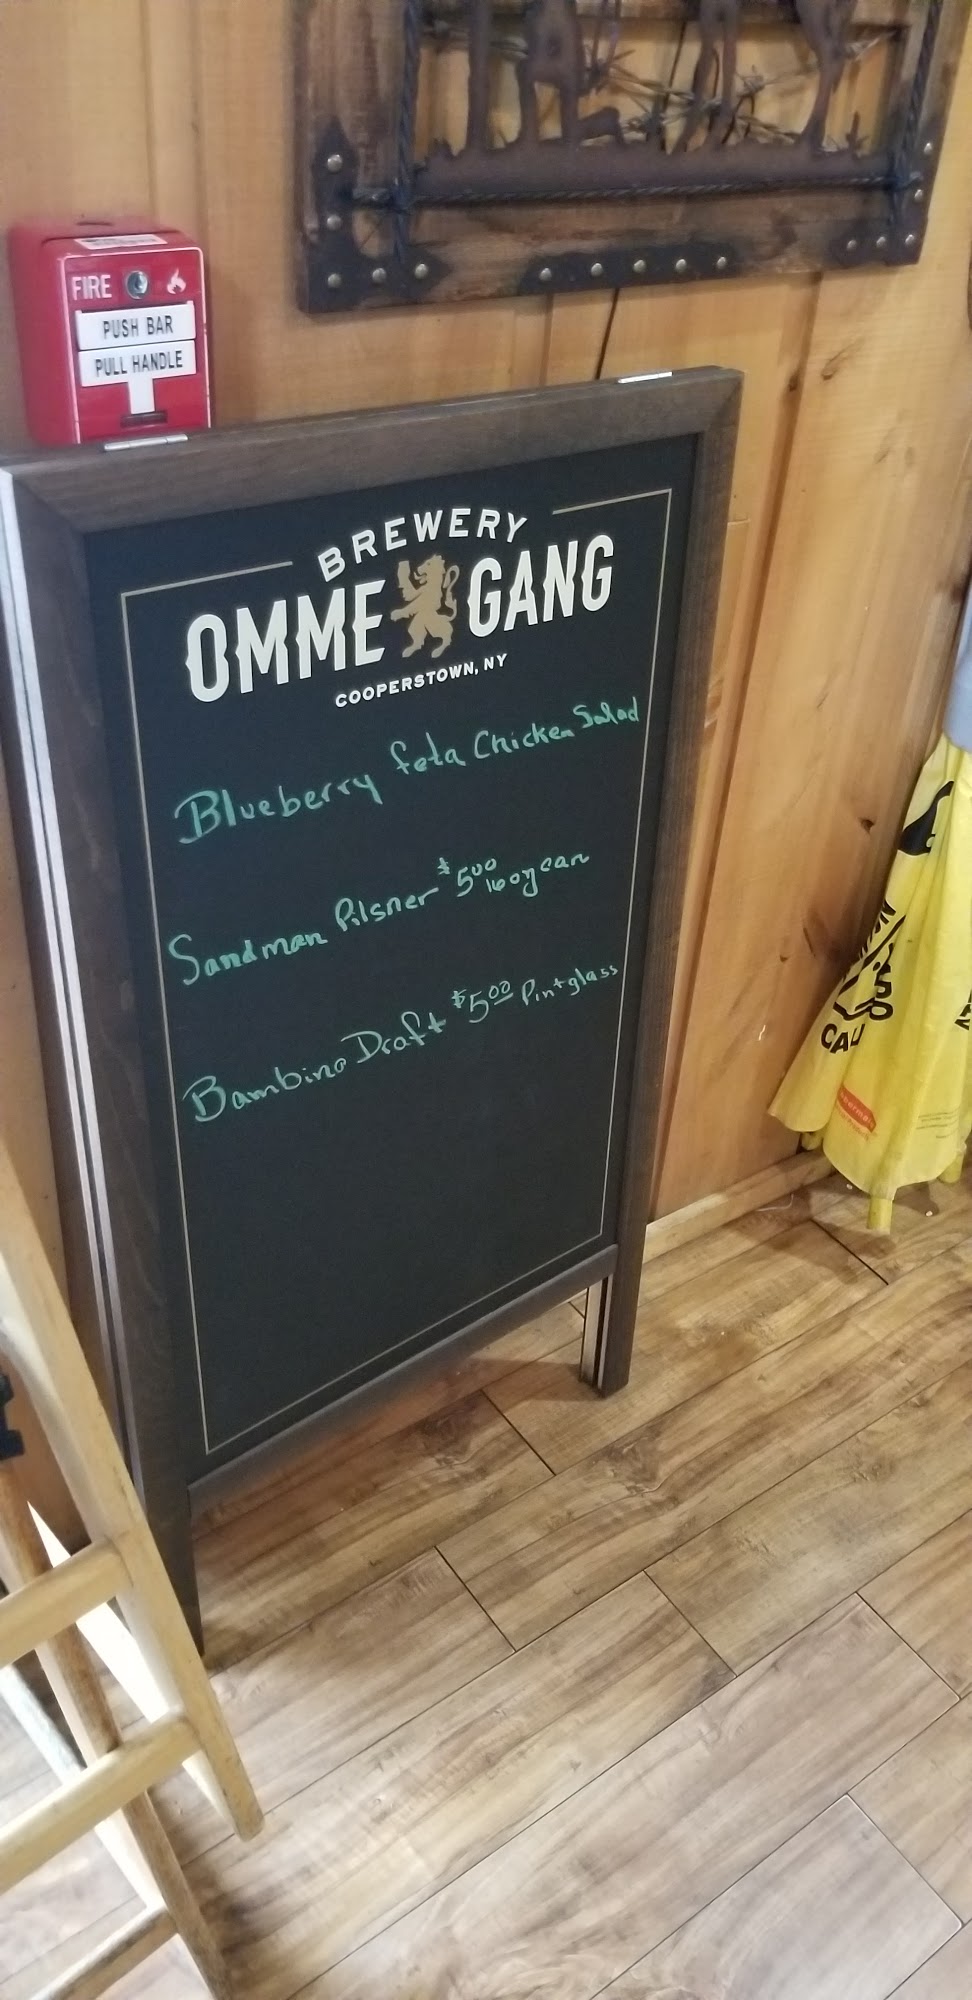 FIRE
PUSH BAR
PULL HANDLE
BREWERY
OMMEGANG
COOPERSTOWN, NY
Blueberry feta Chicken Salad
Sandman Pilsner $5.00 16oz can
Bambino Draft $5.00 Pint glass